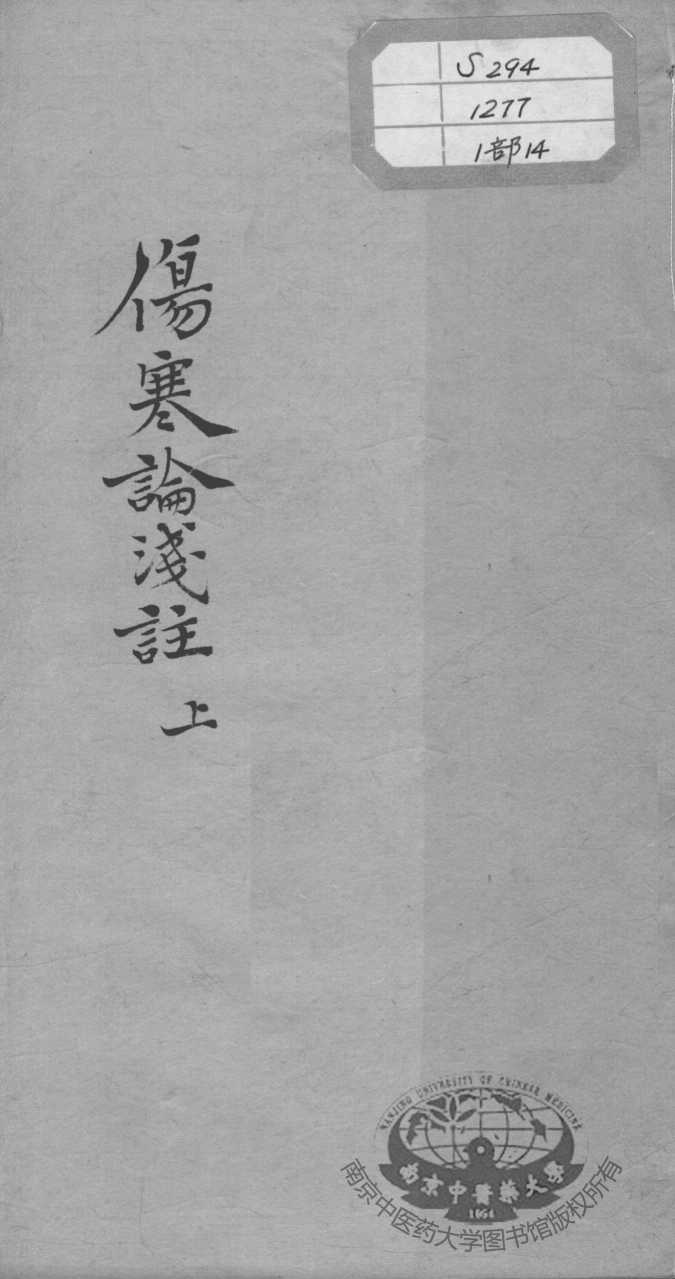 S 294
1277
1部14
傷寒論淺註 上
NANJING UNIVERSITY OF CHINESE MEDICINE
南京中醫藥大學
1954
南京中医药大学图书馆版权所有